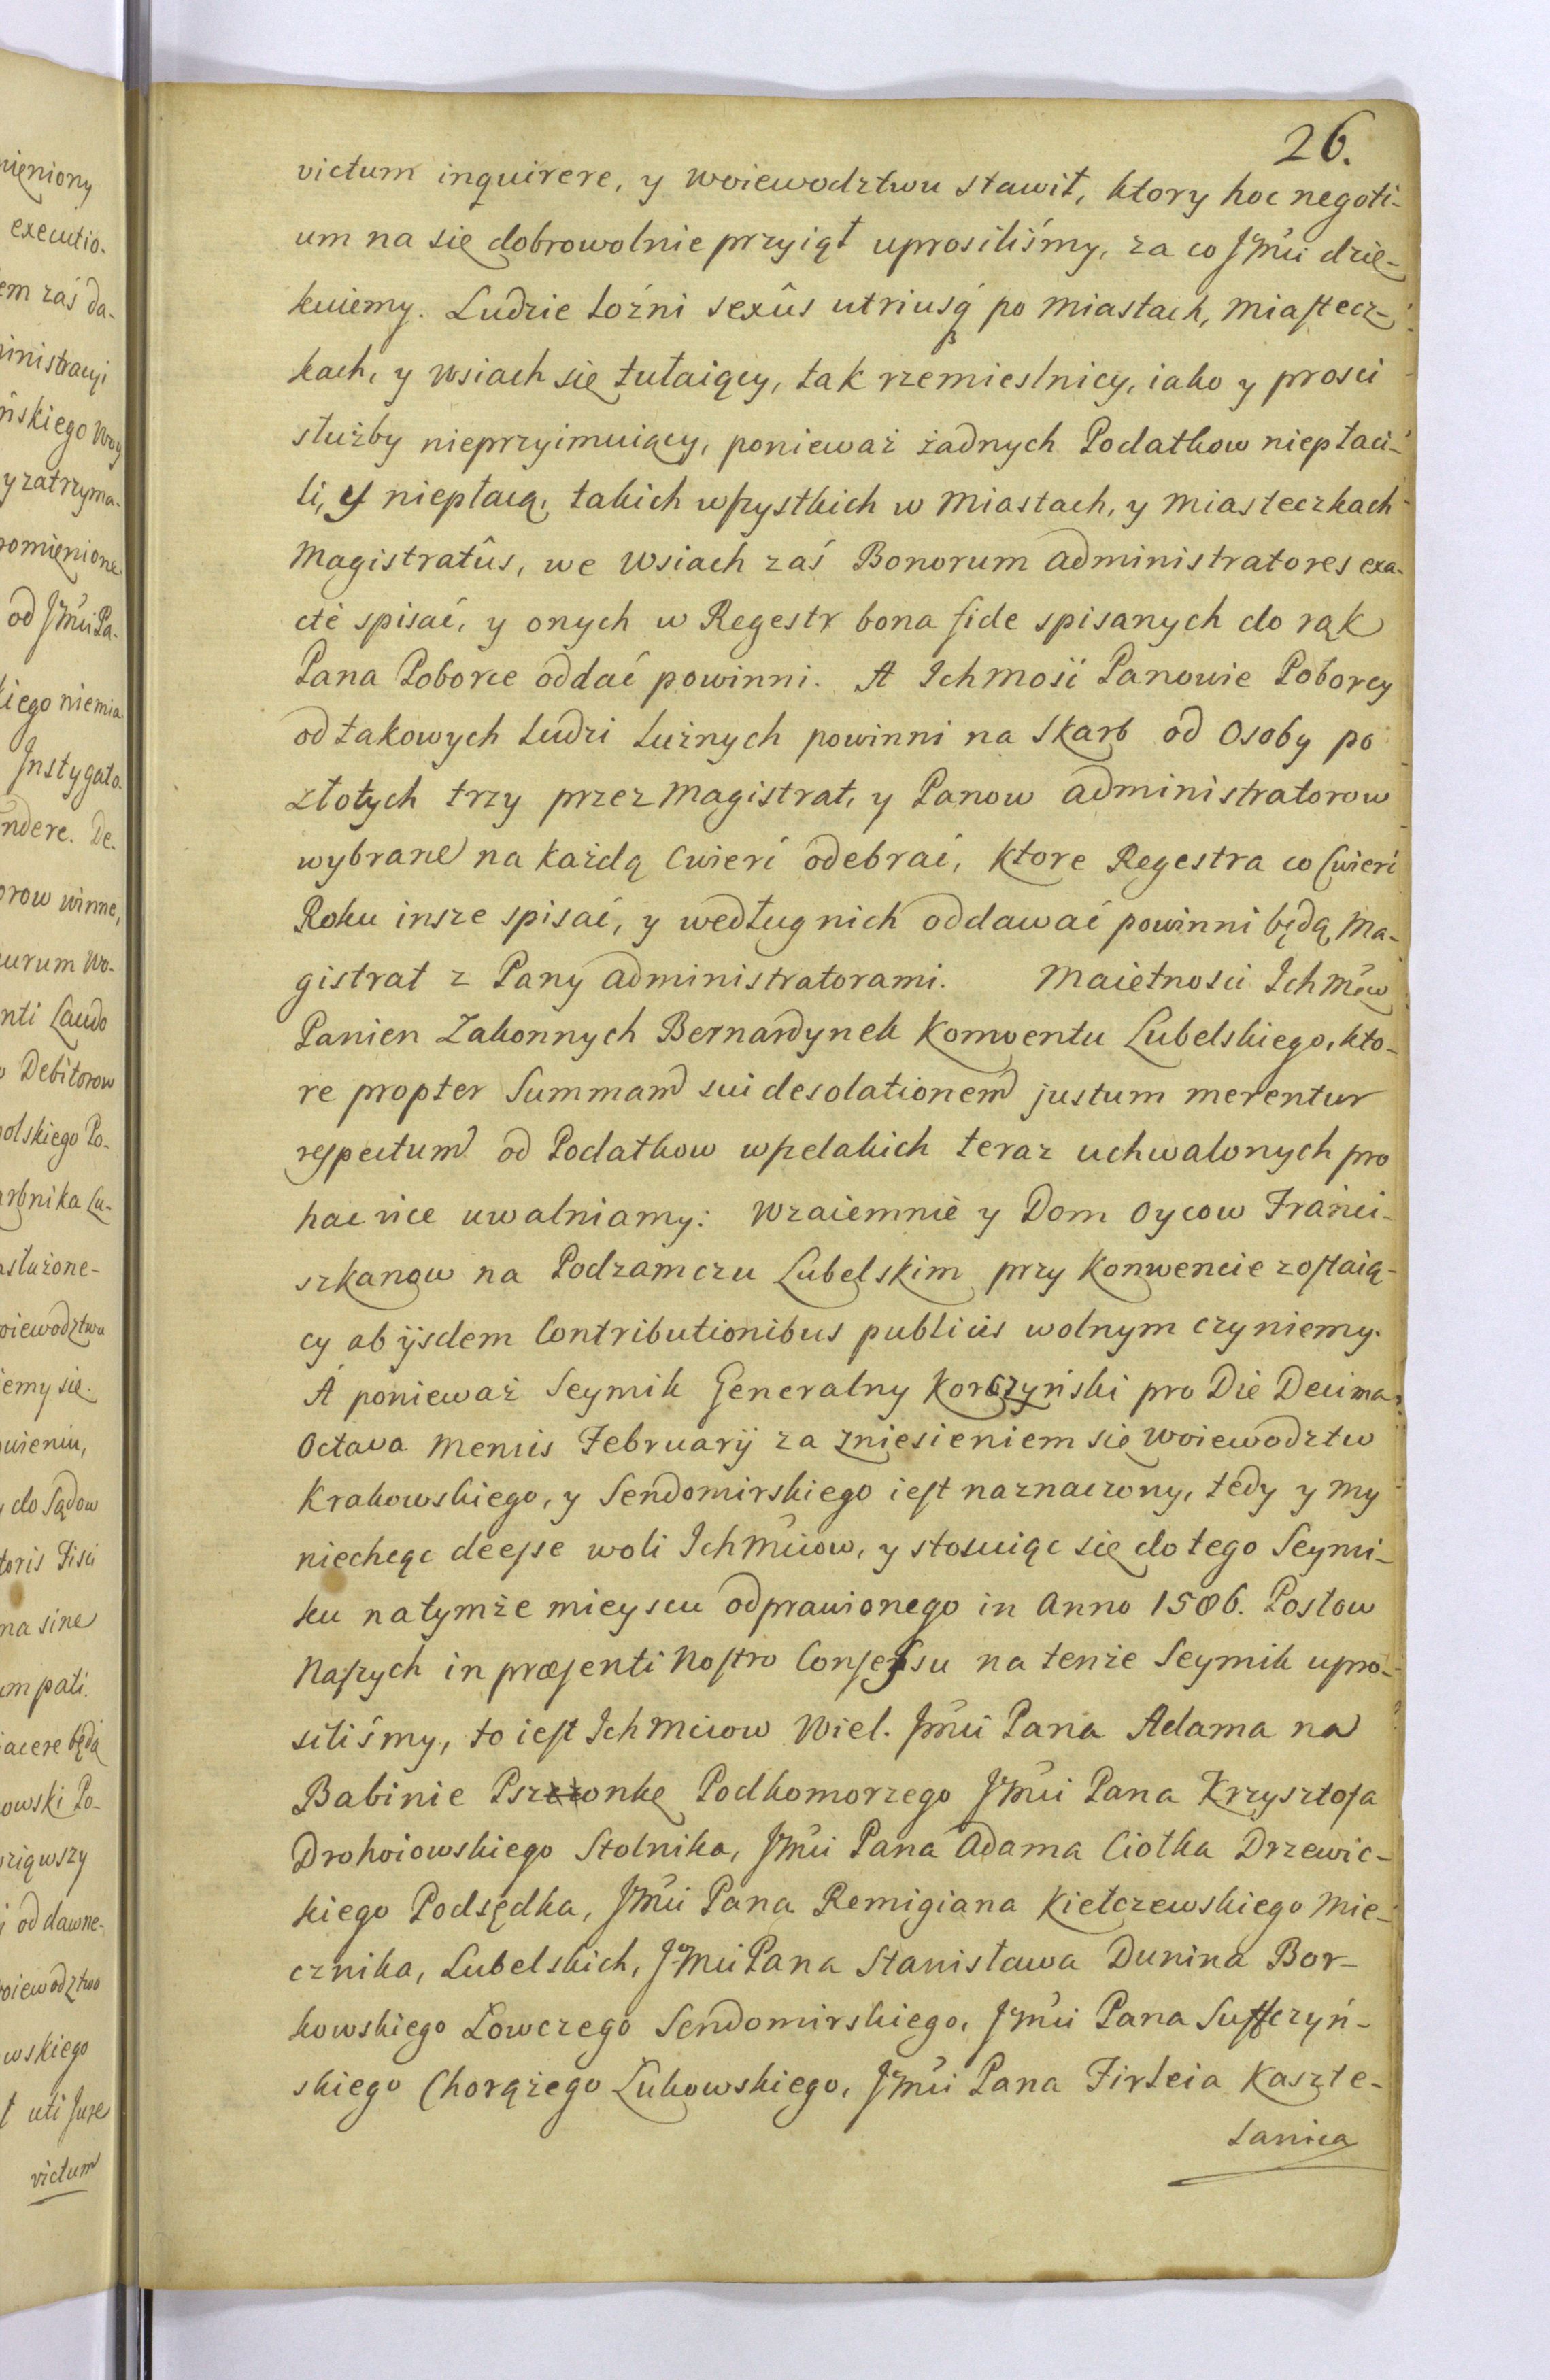 26.
victum inquirere, y woiewodztwu stawił, ktory hoc negoti-
um na się dobrowolnie przyiął uprosiliśmy, za co Jmći dzię-
kuiemy. Ludzie Loźni sexûs utriusq́ po miastach, miastecz-
kach, y wsiach się tułaiący, tak rzemieslnicy, iako y prosci
służby nieprzyimuiący, ponieważ żadnych Podatkow niepłaci-
li, y niepłacą, takich wszystkich w miastach, y miasteczkach
Magistratûs, we wsiach zaś Bonorum administratores exa-
cté spisać, y onych w Regestr bona fide spisanych do rąk
Pana Poborce oddać powinni. A Ichmość Panowie Poborcy
od takowych Ludzi Luźnych powinni na Skarb od Osoby po
złotych trzy przez Magistrat, y Panow administratorow
wybrane na każdą Cwierć odebrać, ktore Regestra co Cwierć
Roku insze spisać, y według nich oddawać powinni będą Ma-
gistrat z Pany administratorami. Maiętnosci Ichmćw
Panien Zakonnych Bernardynek Konwentu Lubelskiego, kto-
re propter Summam sui desolationem justum merentur
respectum od Podatkow wszelakich teraz uchwalonych pro
hac vice uwalniamy: wzaiemnie y Dom Oycow Franci-
szkanow na Podzamczu Lubelskim przy Konwencie zostaią-
cy ab ijsdem Contributionibus publicis wolnym czyniemy.
A ponieważ Seymik Generalny Korczyński pro Die Decima
Octava Mensis Februarij za zniesieniem się woiewodztw
Krakowskiego, y Sendomirskiego iest naznaczony, tedy y my
niechcąc deesse woli Ichmćiow, y stosuiąc się do tego Seymi-
ku na tymże mieyscu odprawionego in Anno 1586. Posłow
Naszych in præsenti Nostro Consessu na tenże Seymik upro-
siliśmy, to iest Ichmciow Wiel. Jmći Pana Adama na
Babinie Pszzonkę Podkomorzego Jmći Pana Krzysztofa
Drohoiowskiego Stolnika, Jmći Pana Adama Ciołka Drzewic-
kiego Podsędka, Jmći Pana Remigiana Kiełczewskiego Mie-
cznika, Lubelskich, Jmći Pana Stanisława Dunina Bor-
kowskiego Łowczego Sendomirskiego, Jmći Pana Suffczyń-
skiego Chorążego Łukowskiego, Jmći Pana Firleia Kaszte-
lanica